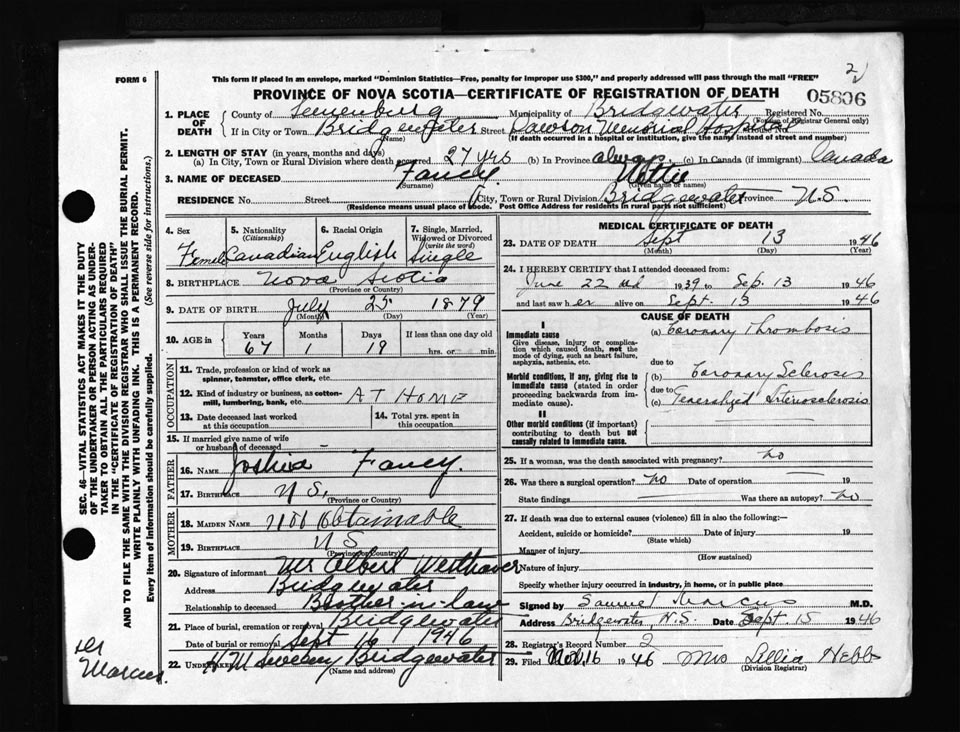 2
FORM 6
This form if placed in an envelope, marked "Dominion Statistics—Free, penalty for improper use $300," and properly addressed will pass through the mail "FREE"
PROVINCE OF NOVA SCOTIA—CERTIFICATE OF REGISTRATION OF DEATH
05806
1. PLACE OF DEATH
County of Lunenburg Municipality of Bridgewater Registered No.
(For use of Registrar General only)
If in City or Town Bridgewater Street Dawson Memorial Hospital House No.
(Name) (If death occurred in a hospital or institution, give the name instead of street and number)
2. LENGTH OF STAY (in years, months and days)
(a) In City, Town or Rural Division where death occurred 27 yrs (b) In Province always (c) In Canada (if immigrant) Canada
3. NAME OF DECEASED Fancy Nettie
(Surname) (Given name or names)
RESIDENCE No. Street City, Town or Rural Division Bridgewater Province N.S.
(Residence means usual place of abode. Post Office Address for residents in rural parts not sufficient)
4. Sex Female
5. Nationality (Citizenship) Canadian
6. Racial Origin English
7. Single, Married, Widowed or Divorced (write the word) Single
8. BIRTHPLACE Nova Scotia
(Province or Country)
9. DATE OF BIRTH July 25 1879
(Month) (Day) (Year)
10. AGE in Years Months Days If less than one day old
67 1 19 hrs. or min.
OCCUPATION
11. Trade, profession or kind of work as spinner, teamster, office clerk, etc.
12. Kind of industry or business, as cotton-mill, lumbering, bank, etc. AT HOME
13. Date deceased last worked at this occupation
14. Total yrs. spent in this occupation
15. If married give name of wife or husband of deceased —
FATHER
16. NAME Joshua Fancy.
17. BIRTHPLACE N.S.
(Province or Country)
MOTHER
18. MAIDEN NAME Not Obtainable
19. BIRTHPLACE N.S.
(Province or Country)
20. Signature of informant Mr Albert Weithaver
Address Bridgewater
Relationship to deceased Brother-in-law
21. Place of burial, cremation or removal Bridgewater
Date of burial or removal Sept 16 1946
22. UNDERTAKER H M Sweeny Bridgewater
(Name and address)
MEDICAL CERTIFICATE OF DEATH
23. DATE OF DEATH Sept 13 1946
(Month) (Day) (Year)
24. I HEREBY CERTIFY that I attended deceased from:
June 22 nd 1939 to Sep. 13 1946
and last saw her alive on Sept. 13 1946
CAUSE OF DEATH
I
Immediate cause
Give disease, injury or complication which caused death, not the mode of dying, such as heart failure, asphyxia, asthenia, etc.
(a) Coronary Thrombosis
due to
Morbid conditions, if any, giving rise to immediate cause (stated in order proceeding backwards from immediate cause).
(b) Coronary Sclerosis
due to
(c) Generalized Arteriosclerosis
II
Other morbid conditions (if important) contributing to death but not causally related to immediate cause.
25. If a woman, was the death associated with pregnancy? no
26. Was there a surgical operation? no Date of operation 19
State findings — Was there an autopsy? no
27. If death was due to external causes (violence) fill in also the following:—
Accident, suicide or homicide? Date of injury 19
(State which)
Manner of injury
(How sustained)
Nature of injury
Specify whether injury occurred in industry, in home, or in public place
Signed by Samuel Marcus M.D.
Address Bridgewater, N.S. Date Sept. 15 1946
28. Registrar's Record Number 2
29. Filed 16 1946 Mrs Lillia Hebb
(Division Registrar)
SEC. 46—VITAL STATISTICS ACT MAKES IT THE DUTY
OF THE UNDERTAKER OR PERSON ACTING AS UNDER-
TAKER TO OBTAIN ALL THE PARTICULARS REQUIRED
IN THE "CERTIFICATE OF REGISTRATION OF DEATH"
AND TO FILE THE SAME WITH THE DIVISION REGISTRAR WHO SHALL ISSUE THE BURIAL PERMIT.
WRITE PLAINLY WITH UNFADING INK. THIS IS A PERMANENT RECORD.
Every item of information should be carefully supplied. (See reverse side for instructions.)
Marcus